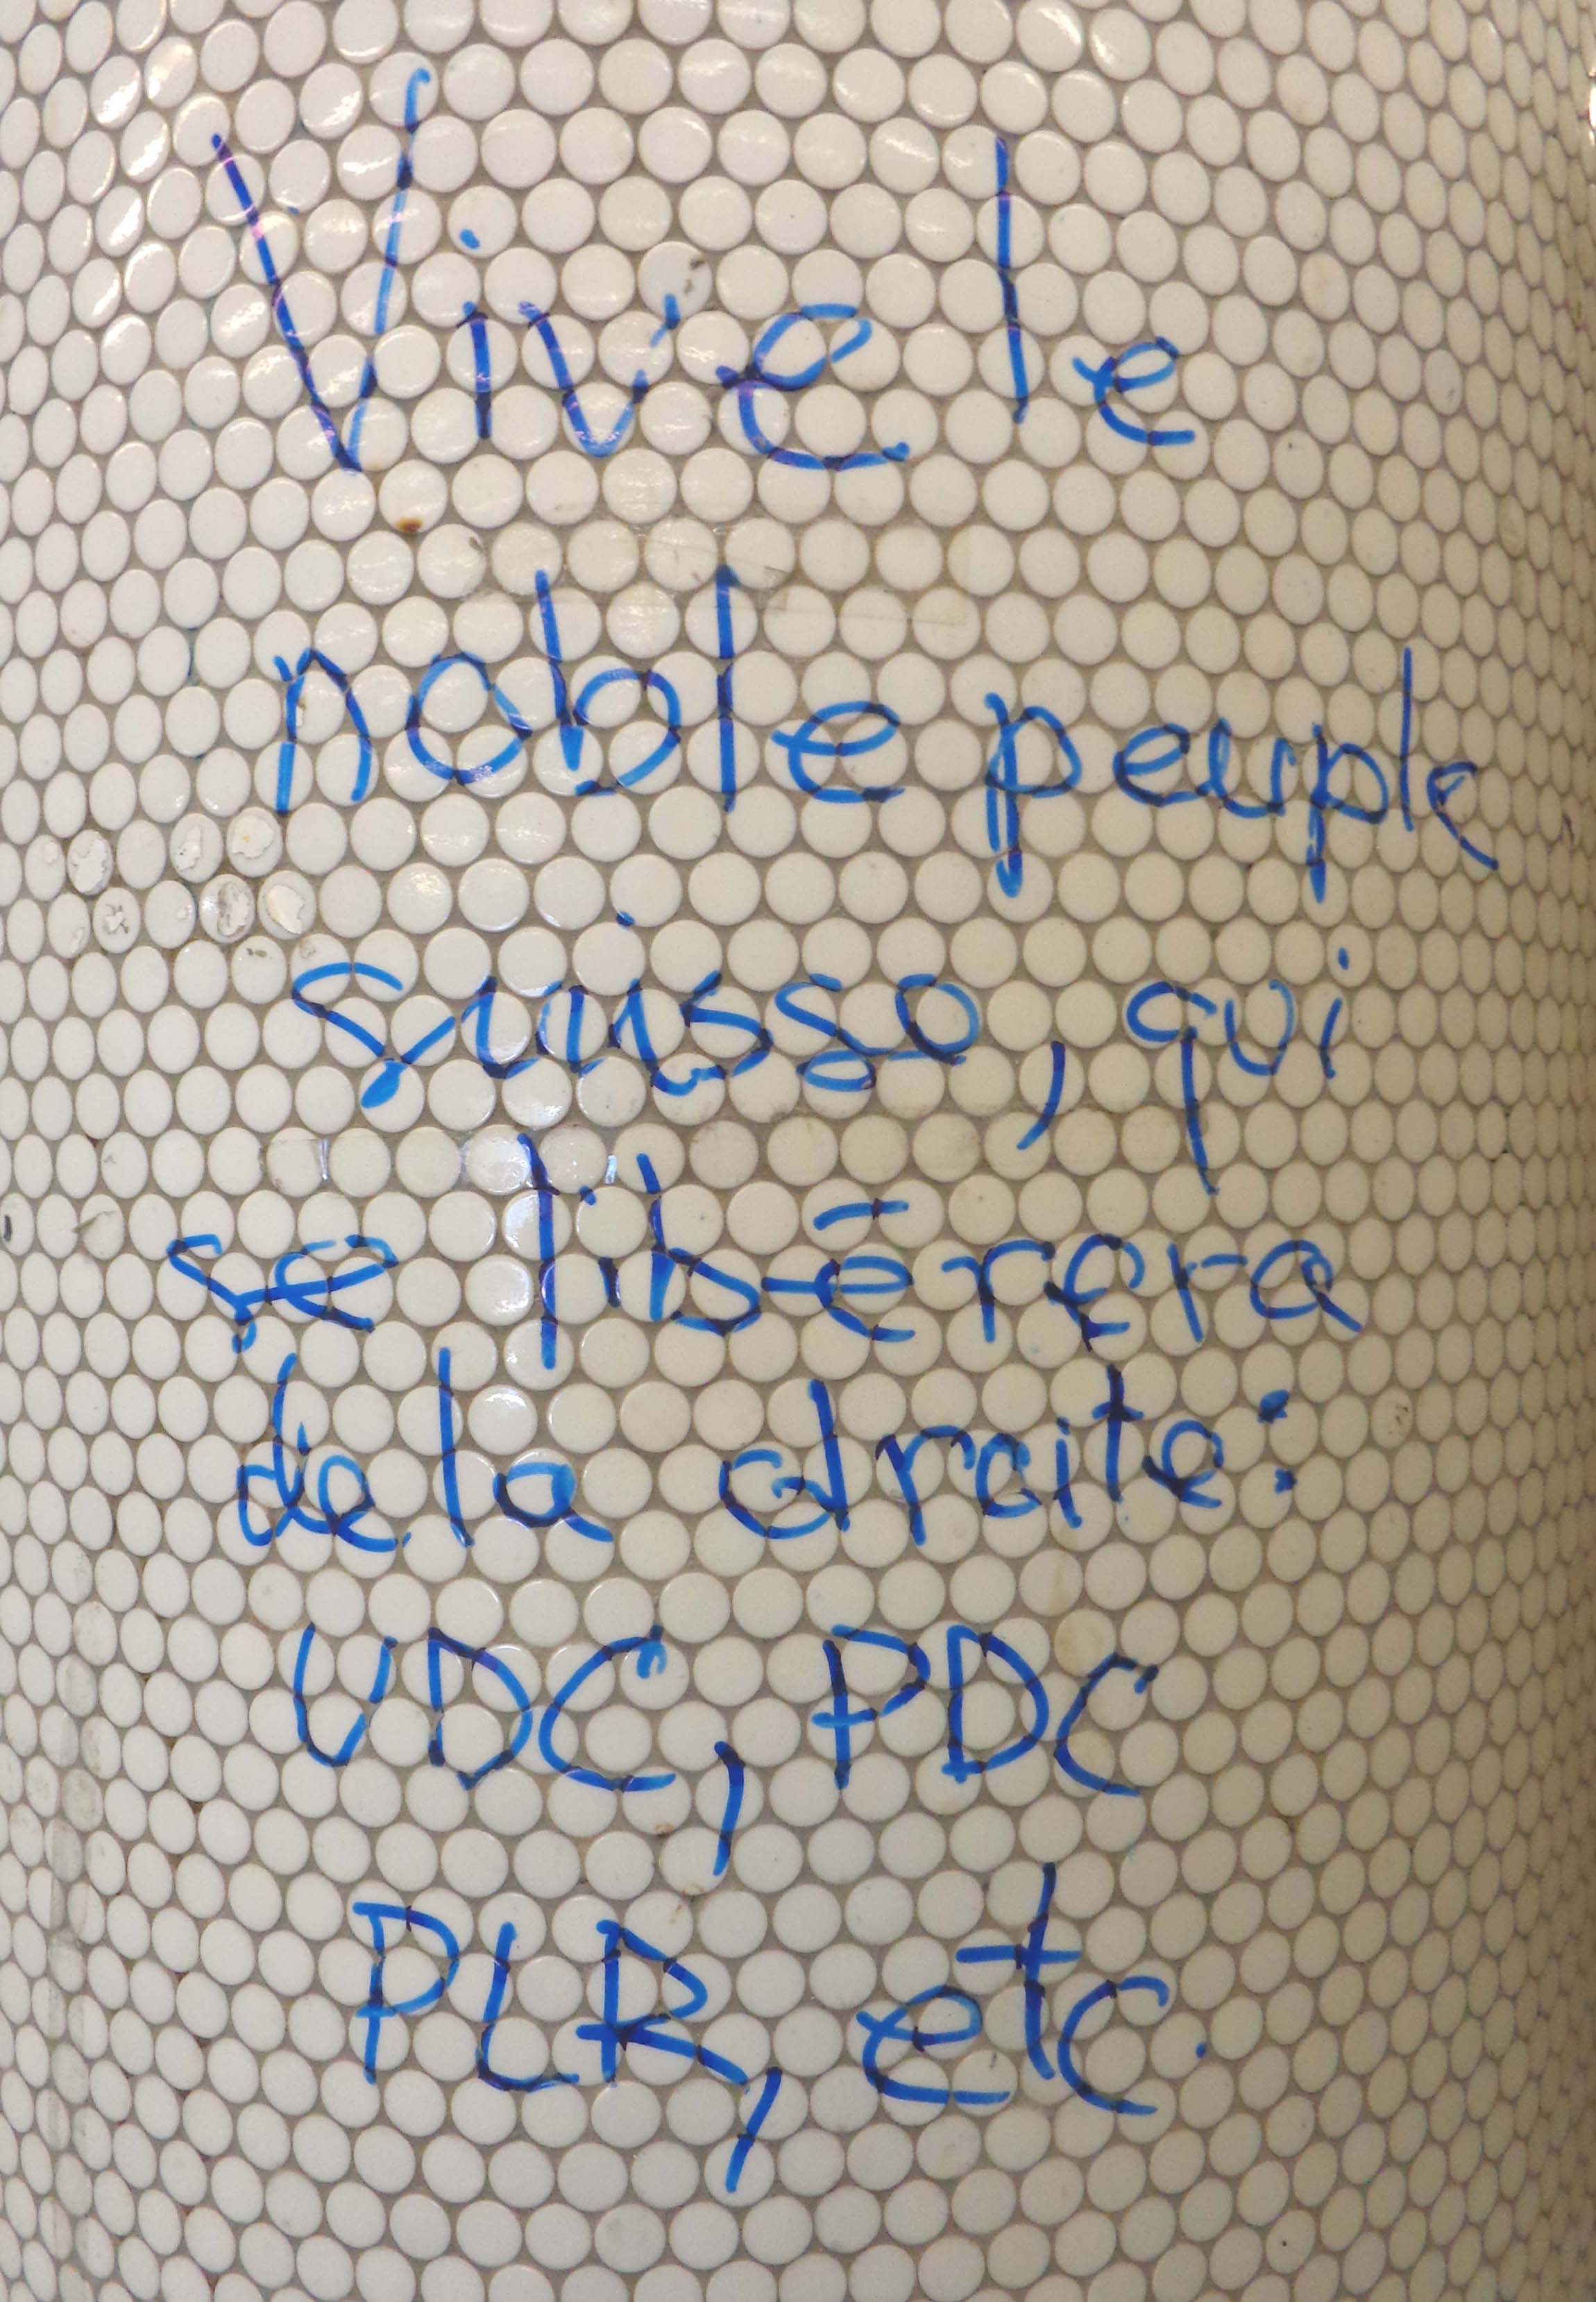 Vive le
noble peuple
suisse, qui
se libérera
de la droite:
UDC, PDC
PLR, etc.